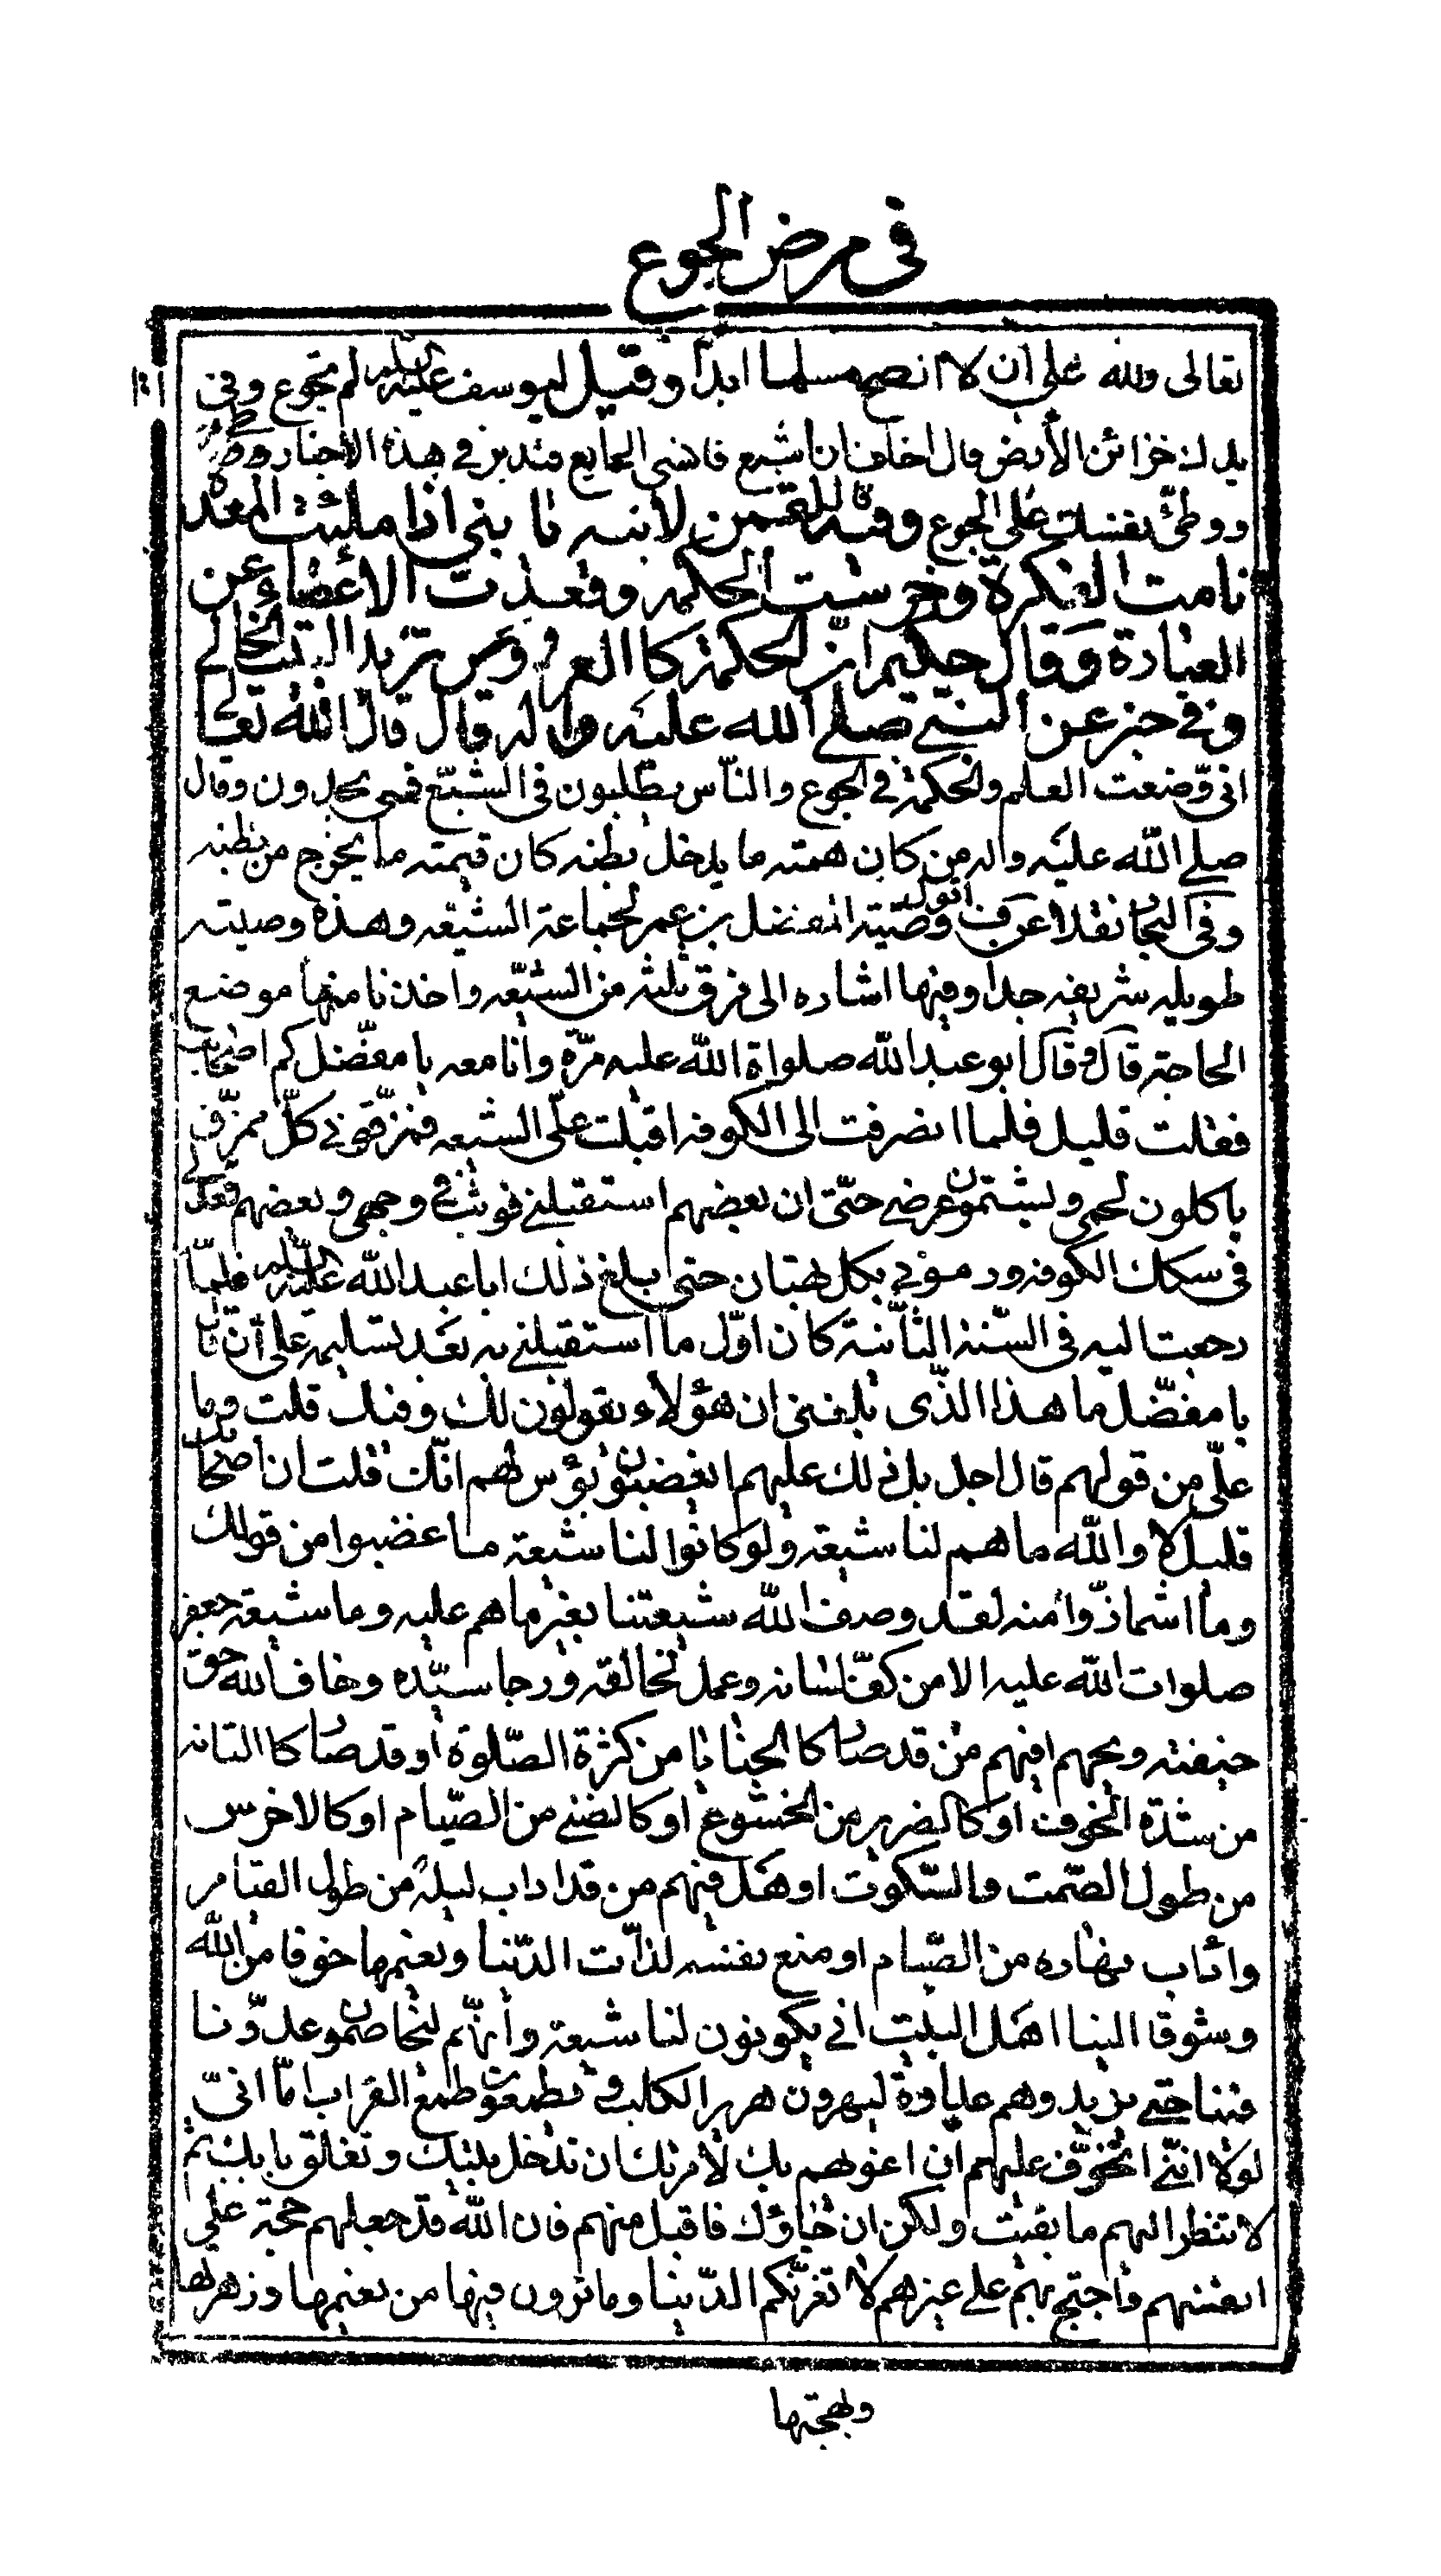 فى مرض الجوع
تعالى ولله على ان لا انصح مسلما ابدا وقيل ليوسف عليه السلم لم تجوع وفى
يدك خزائن الأرض قال اخاف ان اشبع فانسى الجايع فتدبر في هذه الأخبار
ووطئ نفسك على الجوع وقد قال لقمن لابنه يا بنى اذا ملئت المعده
نامت الفكرة وخرست الحكمه وقعدت الاعضاء عن
العبادة وقال حكيم ان الحكمة كا العروس تريد البيت الخالى
وفي خبر عن النبي صلى الله عليه واله قال قال الله تعالى
انى وضعت العلم والحكمة في الجوع والناس يطلبون فى الشبع فمتى يجدون وقال
صلى الله عليه واله من كان همته ما يدخل بطنه كان قيمته ما يخرج من بطنه
وفى البحار نقلا عن ف اقول وصية المفضل بن عمر لجماعة الشيعه وهذه وصيته
طويله شريفه جدا وفيها اشاره الى فرق ثلثه من الشيعه واخذنا منها موضع
الحاجة قال وقال ابو عبد الله صلواة الله عليه مرة وانا معه يا مفضل كم اصحابك
فقلت قليل فلما انصرفت الى الكوفه اقبلت على الشيعه فمزقونى كل ممزق
ياكلون لحمى ويشتمون عرضى حتى ان بعضهم استقبلنى فوثب فى وجهى وبعضهم قعد لى
فى سكك الكوفه ورمونى بكل بهتان حتى بلغ ذلك ابا عبد الله عليه السلم فلما
رجعت اليه فى السنة الثانية كان اول ما استقبلنى به بعد تسليمه على ان قال
يا مفضل ما هذا الذى بلغنى ان هؤلاء يقولون لك وفيك قلت وما
على من قولهم قال اجل بل ذلك عليهم ايغضبون بؤس لهم انك قلت ان اصحابك
قليل لا والله ما هم لنا شيعة ولو كانوا لنا شيعة ما غضبوا من قولك
وما اشمازوا منه لقد وصف الله شيعتنا بغير ما هم عليه وما شيعة جعفر
صلوات الله عليه الا من كف لسانه وعمل لخالقه ورجا سيده وخاف الله حق
خيفته ويحهم افيهم من قد صار كا الحنايا من كثرة الصلوة او قد صار كا التائه
من شدة الخوف او كالضرير من الخشوع او كالضنى من الصيام او كالاخرس
من طول الصمت والسكوت او هل فيهم من قد اداب ليله من طول القيام
واداب نهاره من الصيام او منع نفسه لذات الدنيا ونعيمها خوفا من الله
وشوقا الينا اهل البيت انى يكونون لنا شيعة وانهم ليخاصمون عدونا
فينا حتى يزيدوهم عداوة ليهرون هرير الكلب ويطمعون طمع الغراب اما انى
لولا اننى اتخوف عليهم ان اغريهم بك لامرتك ان تدخل بيتك وتغلق بابك ثم
لا تنظر اليهم ما بقيت ولكن ان جاؤك فاقبل منهم فان الله قد جعلهم حجة على
انفسهم واحتج بهم على غيرهم لا تغرنكم الدنيا وما ترون فيها من نعيمها وزهرتها
وبهجتها